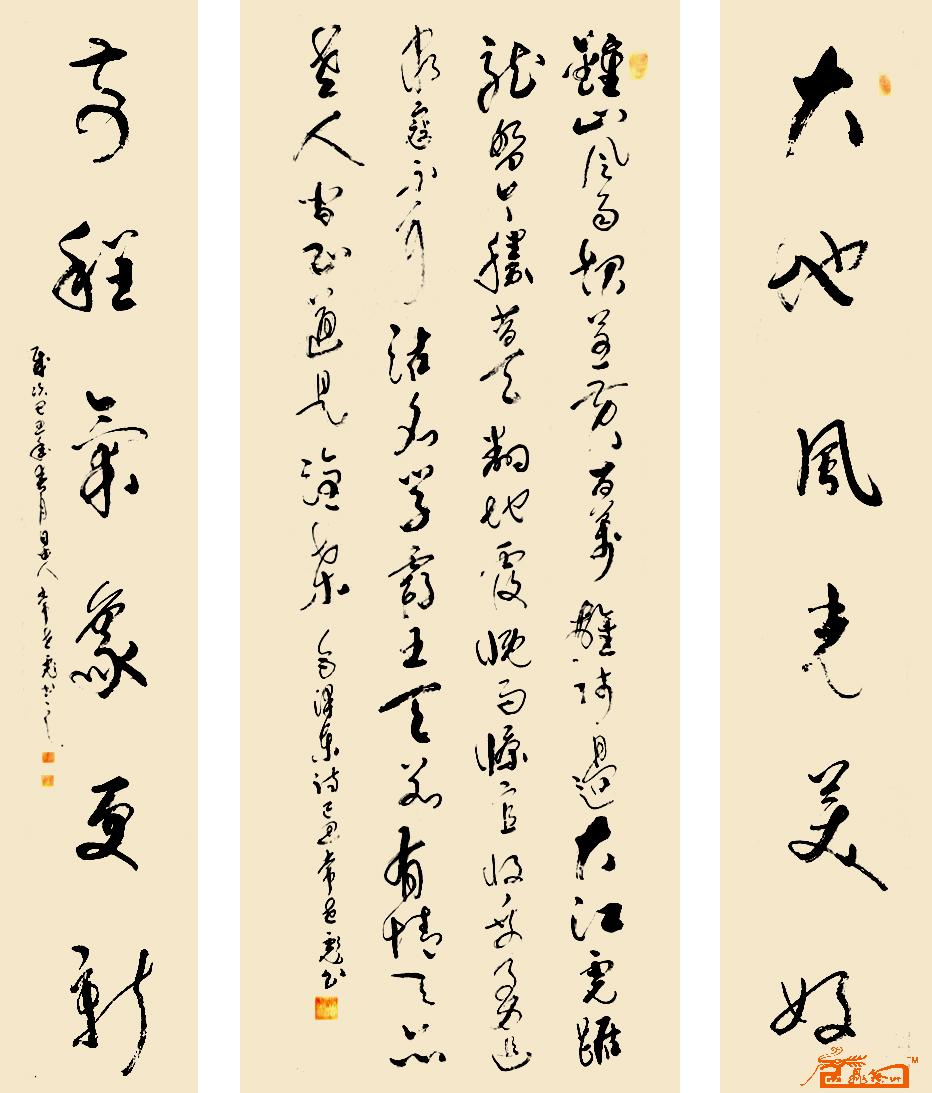 大地風光美好
鍾山风雨起蒼黄百萬雄師過大江虎踞
龍盤今勝昔天翻地覆慨而慷宜將剩勇追
窮寇不可沽名學霸王天若有情天亦
老人間正道是滄桑 毛澤東詩己丑韋道彪书
前程氣象更新
歲次己丑年春月